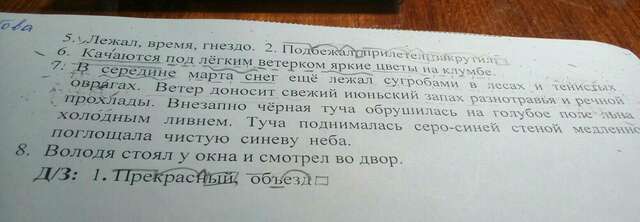 ова
5. Лежал, время, гнездо. 2. Подбежал, прилетел, закрутил
6. Качаются под лёгким ветерком яркие цветы на клумбе.
7. В середине марта снег ещё лежал сугробами в лесах и тенистых
оврагах. Ветер доносит свежий июньский запах разнотравья и речной
прохлады. Внезапно чёрная туча обрушилась на голубое поле льна
холодным ливнем. Туча поднималась серо-синей стеной медленно
поглощала чистую синеву неба.
8. Володя стоял у окна и смотрел во двор.
Д/З: 1. Прекрасный, объезд